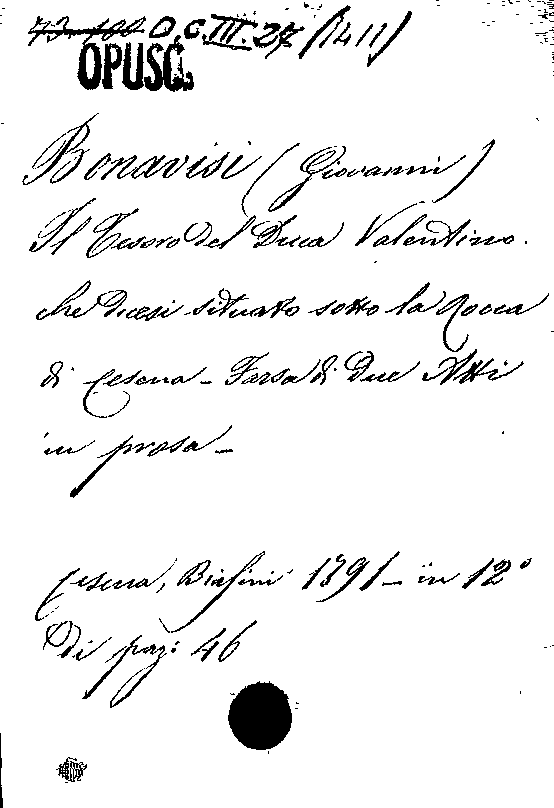 73-100 O.C.III.27 (1411)
OPUSC.
Bonavisi (Giovanni)
Il Tesoro del Duca Valentino.
che dicesi situato sotto la Rocca
di Cesena - Farsa di Due Atti
in prosa -
Cesena, Biasini 1791 - in 12°
Di pag: 46